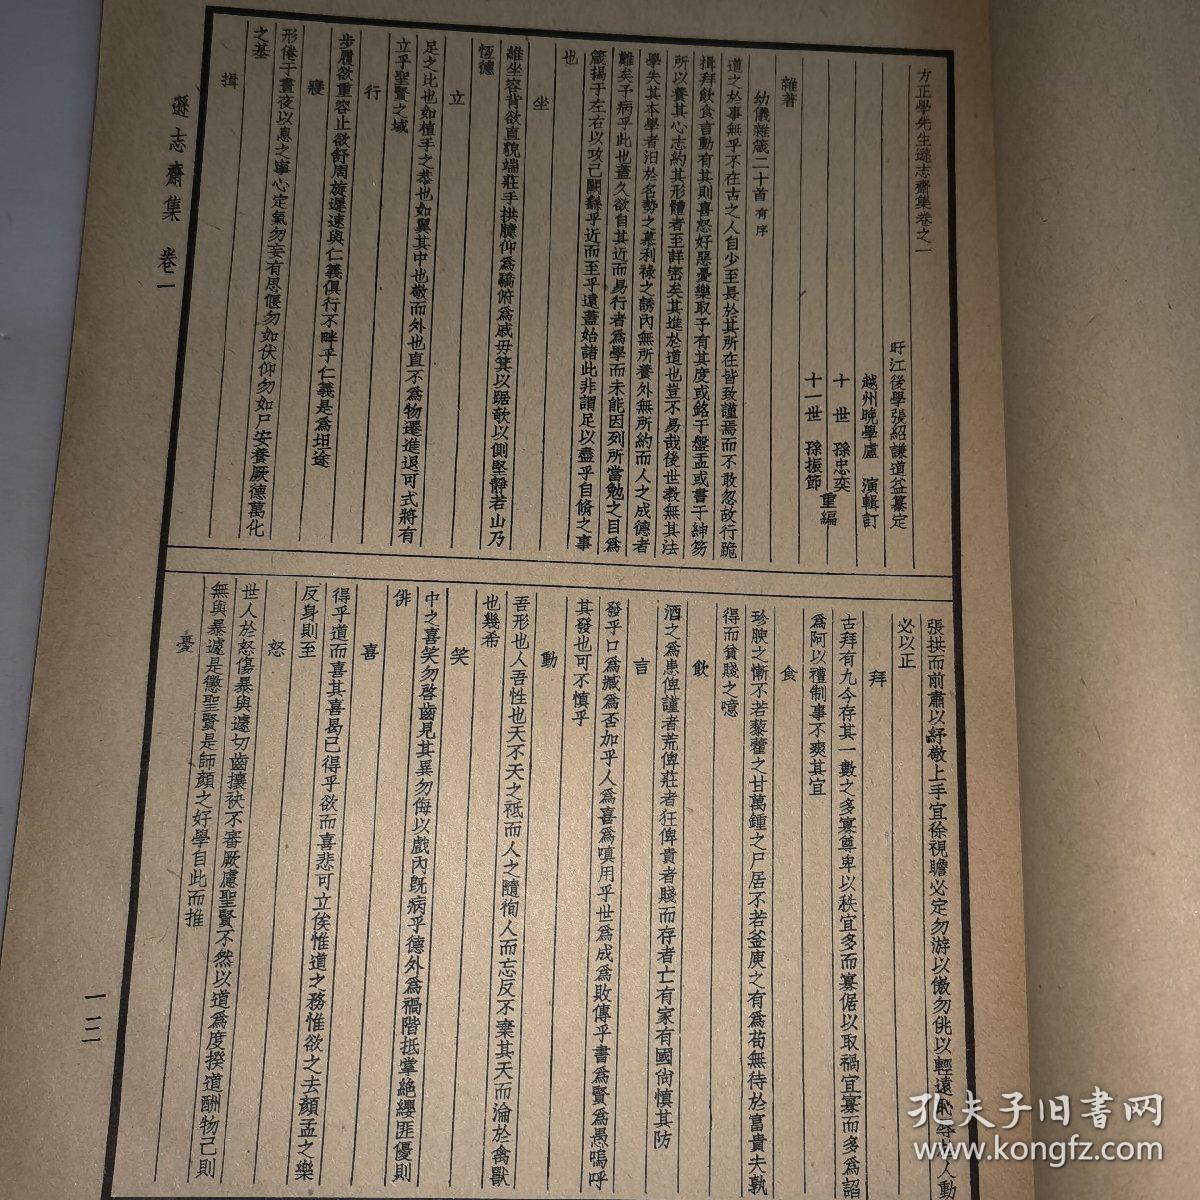 方正學先生遜志齋集卷之一
盱江後學張紹謙道益纂定
越州晚學盧 演輯訂
十 世 孫忠奕
十一世 孫振節
重編
雜著
幼儀雜箴二十首 有序
道之於事無乎不在古之人自少至長於其所在皆致謹焉而不敢忽故行跪
揖拜飲食言動有其則喜怒好惡憂樂取予有其度或銘于盤盂或書于紳笏
所以養其心志約其形體者至詳密矣其進於道也豈不易哉後世教無其法
學失其本學者汨於名勢之慕利祿之誘內無所養外無所約而人之成德者
難矣予病乎此也蓋久欲自其近而易行者為學而未能因列所當勉之目為
箴揭于左右以攻己闕繇乎近而至乎遠蓋始諸此非謂足以盡乎自脩之事
也
坐
維坐容背欲直貌端莊手拱臆仰為驕俯為戚毋箕以踞欹以側堅靜若山乃
恆德
立
足之比也如植手之恭也如翼其中也敬而外也直不為物遷進退可式將有
立乎聖賢之域
行
步履欲重容止欲舒周旋遲速與仁義俱行不畔乎仁義是為坦途
寢
形倦于晝夜以息之寧心定氣勿妄有思偃勿如伏仰勿如尸安養厥德萬化
之基
揖
張拱而前肅以紓敬上手宜徐視瞻必定勿游以傲勿佻以輕遠恥辱於人動
必以正
拜
古拜有九今存其一數之多寡尊卑以秩宜多而寡倨以取禍宜寡而多為諂
為阿以禮制事不爽其宜
食
珍腴之慚不若藜藿之甘萬鍾之尸居不若釜庾之有為苟無待於富貴夫孰
得而貧賤之噫
飲
酒之為患俾謹者荒俾莊者狂俾貴者賤而存者亡有家有國尚慎其防
言
發乎口為臧為否加乎人為喜為嗔用乎世為成為敗傳乎書為賢為愚嗚呼
其發也可不慎乎
動
吾形也人吾性也天不天之祗而人之隨徇人而忘反不棄其天而淪於禽獸
也幾希
笑
中之喜笑勿啓齒見其異勿侮以戲內既病乎德外為禍階抵掌絕纓匪優則
俳
喜
得乎道而喜其喜曷已得乎欲而喜悲可立俟惟道之務惟欲之去顏孟之樂
反身則至
怒
世人於怒傷暴與遽切齒攘袂不審厥慮聖賢不然以道為度揆道酬物己則
無與暴遽是懲聖賢是師顏之好學自此而推
憂
遜志齋集 卷一
一二
孔夫子旧书网
www.kongfz.com